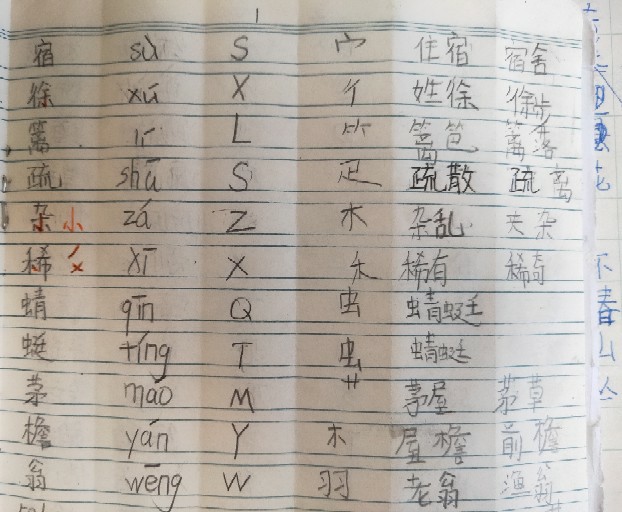 宿 sù S 宀 住宿 宿舍
徐 xú X 彳 姓徐 徐步
篱 lí L ⺮ 篱笆 篱落
疏 shū S 疋 疏散 疏离
杂 小 zá Z 木 杂乱 夫杂
稀 xī X 禾 稀有 稀奇
蜻 qīn Q 虫 蜻蜓
蜓 tíng T 虫 蜻蜓
茅 máo M 艹 茅屋 茅草
檐 yán Y 木 屋檐 前檐
翁 wēng W 羽 老翁 渔翁